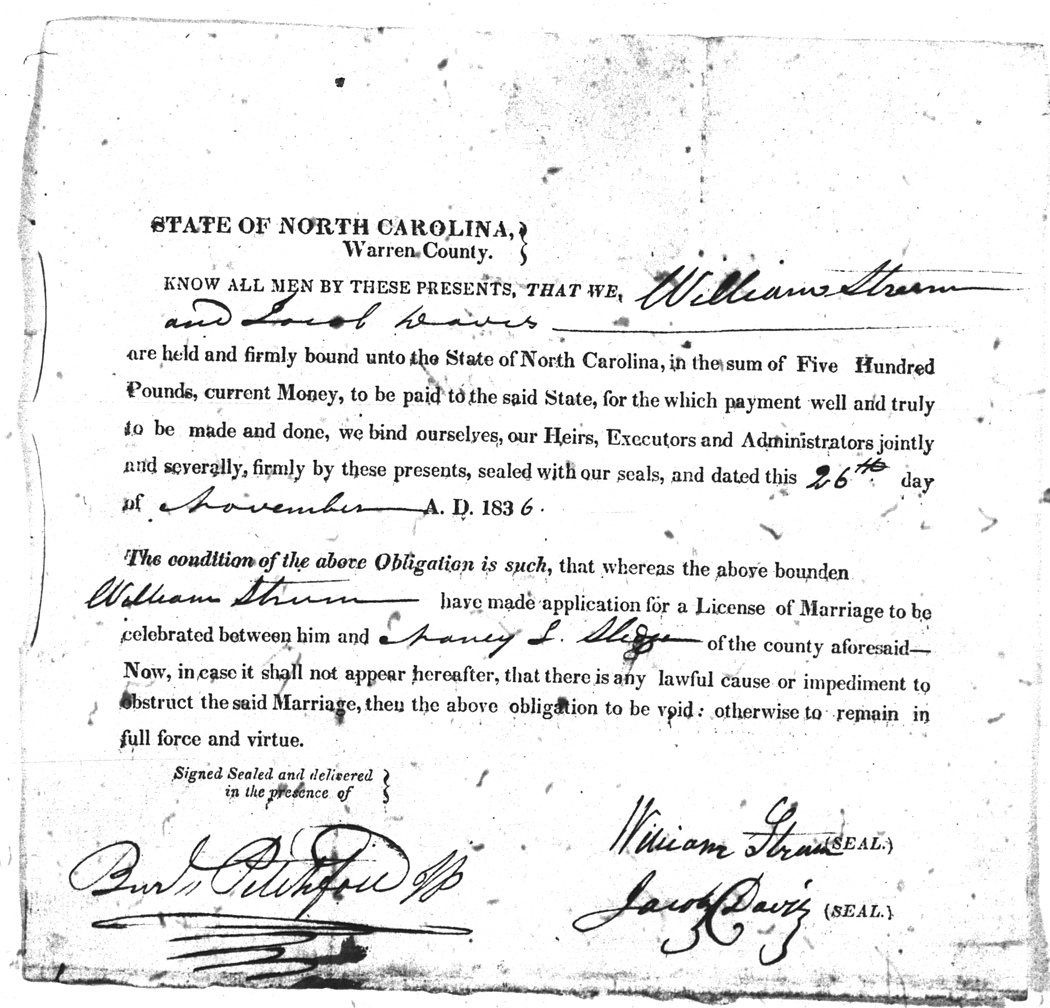 STATE OF NORTH CAROLINA, }
Warren County.
KNOW ALL MEN BY THESE PRESENTS, THAT WE, William Strum
and Jacob Davis
are held and firmly bound unto the State of North Carolina, in the sum of Five Hundred
Pounds, current Money, to be paid to the said State, for the which payment well and truly
to be made and done, we bind ourselves, our Heirs, Executors and Administrators jointly
and severally, firmly by these presents, sealed with our seals, and dated this 26th day
of November A. D. 1836.
The condition of the above Obligation is such, that whereas the above bounden
William Strum have made application for a License of Marriage to be
celebrated between him and Nancy L. of the county aforesaid—
Now, in case it shall not appear hereafter, that there is any lawful cause or impediment to
obstruct the said Marriage, then the above obligation to be void: otherwise to remain in
full force and virtue.
Signed Sealed and delivered }
in the presence of
William Strum (SEAL.)
Jacob Davis (SEAL.)